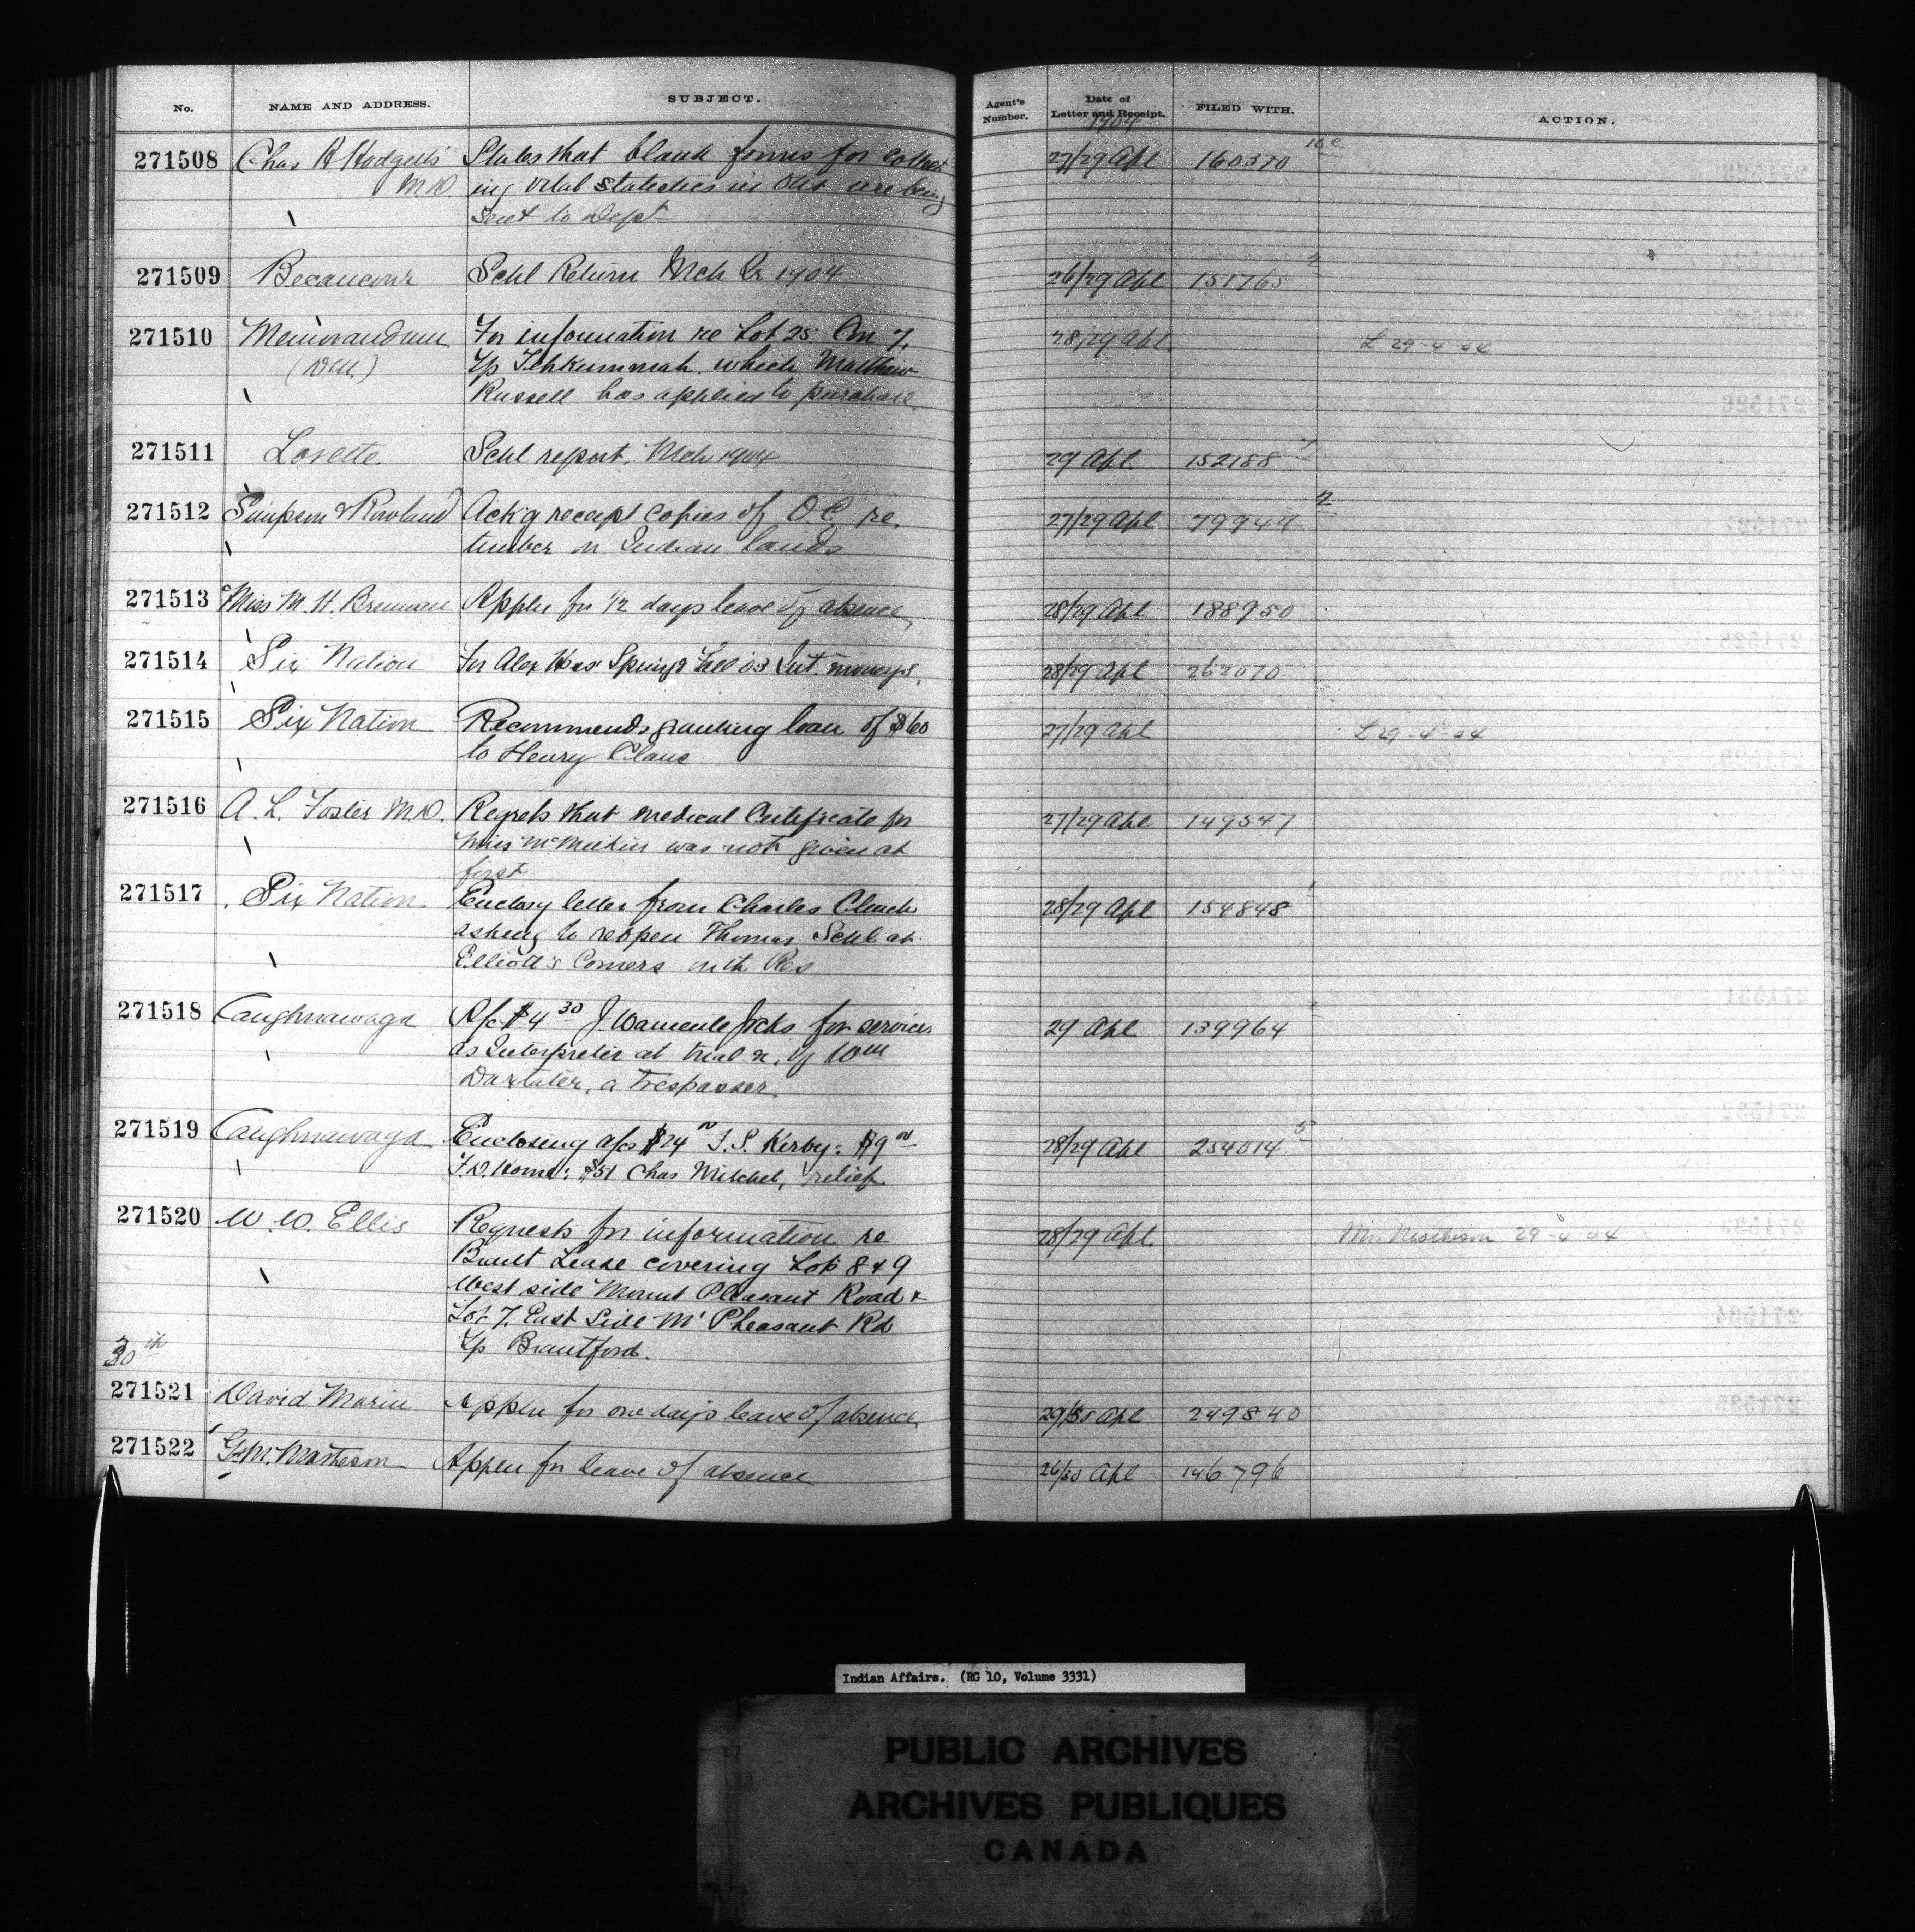 No. NAME AND ADDRESS. SUBJECT. Agent's Number. Date of Letter and Receipt. FILED WITH. ACTION.
1904
271508 Chas A Hodgetts States that blank forms for collect 27/29 Apl 160370 10c
M.D. ing vital statistics in Ont are being
sent to Dept
271509 Becancour Schl Return Mch Qr 1904 26/29 Apl 151765 2
271510 Memorandum For information re Lot 25 Con 7. 28/29 Apl L 29-4-04
Tp Tehkummah which Matthew
Russell has applied to purchase
271511 Lorette Schl report, Mch 1904 29 Apl. 152188 7
271512 Simpson & Rowland Ack'g receipt copies of O.C. re. 27/29 Apl 79944 2
timber on Indian lands
271513 Miss M. H. Brennan Appln for 1/2 days leave of absence 28/29 Apl 188950
271514 Six Nation For Alex Spring & Fall 03 Int. moneys. 28/29 Apl 262070
271515 Six Nation Recommends granting loan of $60 27/29 Apl L 29-4-04
to Henry Claus
271516 A. L. Foster M.D. Regrets that medical Certificate for 27/29 Apl 149547
Miss was not given at
first
271517 Six Nation Enclosg letter from Charles Clench 28/29 Apl 154848
asking to reopen Thomas Schl at
Elliott's Corners with Res
271518 Caughnawaga A/c $4 30 J Jocks for services 29 Apl 139964 2
as Interpreter at trial &c. of Wm
Daxtater, a trespasser
271519 Caughnawaga Enclosing a/cs $24 F.S. Kerby: $9 28/29 Apl 254014 5
$51 Chas Mitchel, relief
271520 W. W. Ellis Requests for information re 28/29 Apl. Mr. Matheson 29-4-04
Brant Lease covering Lots 8 & 9
West side Mount Pleasant Road &
Lot 7. East Side Mt Pleasant Rd
Tp Brantford.
30th
271521 David Morin Appln for one day's leave of absence 29/30 Apl 249840
271522 G. M. Matheson Appln for leave of absence 26/30 Apl 146796
Indian Affairs. (RG 10, Volume 3331)
PUBLIC ARCHIVES
ARCHIVES PUBLIQUES
CANADA